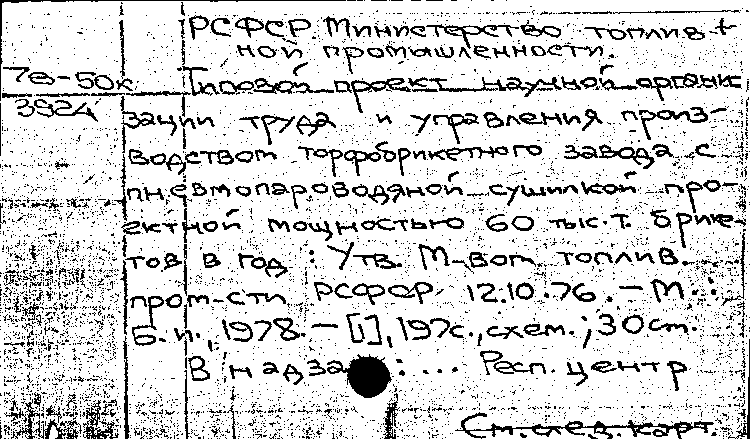 РСФСР. Министерство топлив
ной промышленности.
7в-50к Типовой проект научной органи
3924 зации труда и управления произ-
водством торфобрикетного завода с
пневмопароводяной сушилкой про-
ектной мощностью 60 тыс.т. брике-
тов в год : Утв. М-вом топлив.
пром-сти РСФСР 12.10.76. - М. :
Б.и., 1978. - [1], 197с., схем. ; 30 см.
В надза : ... Респ. центр
См. след. карт.